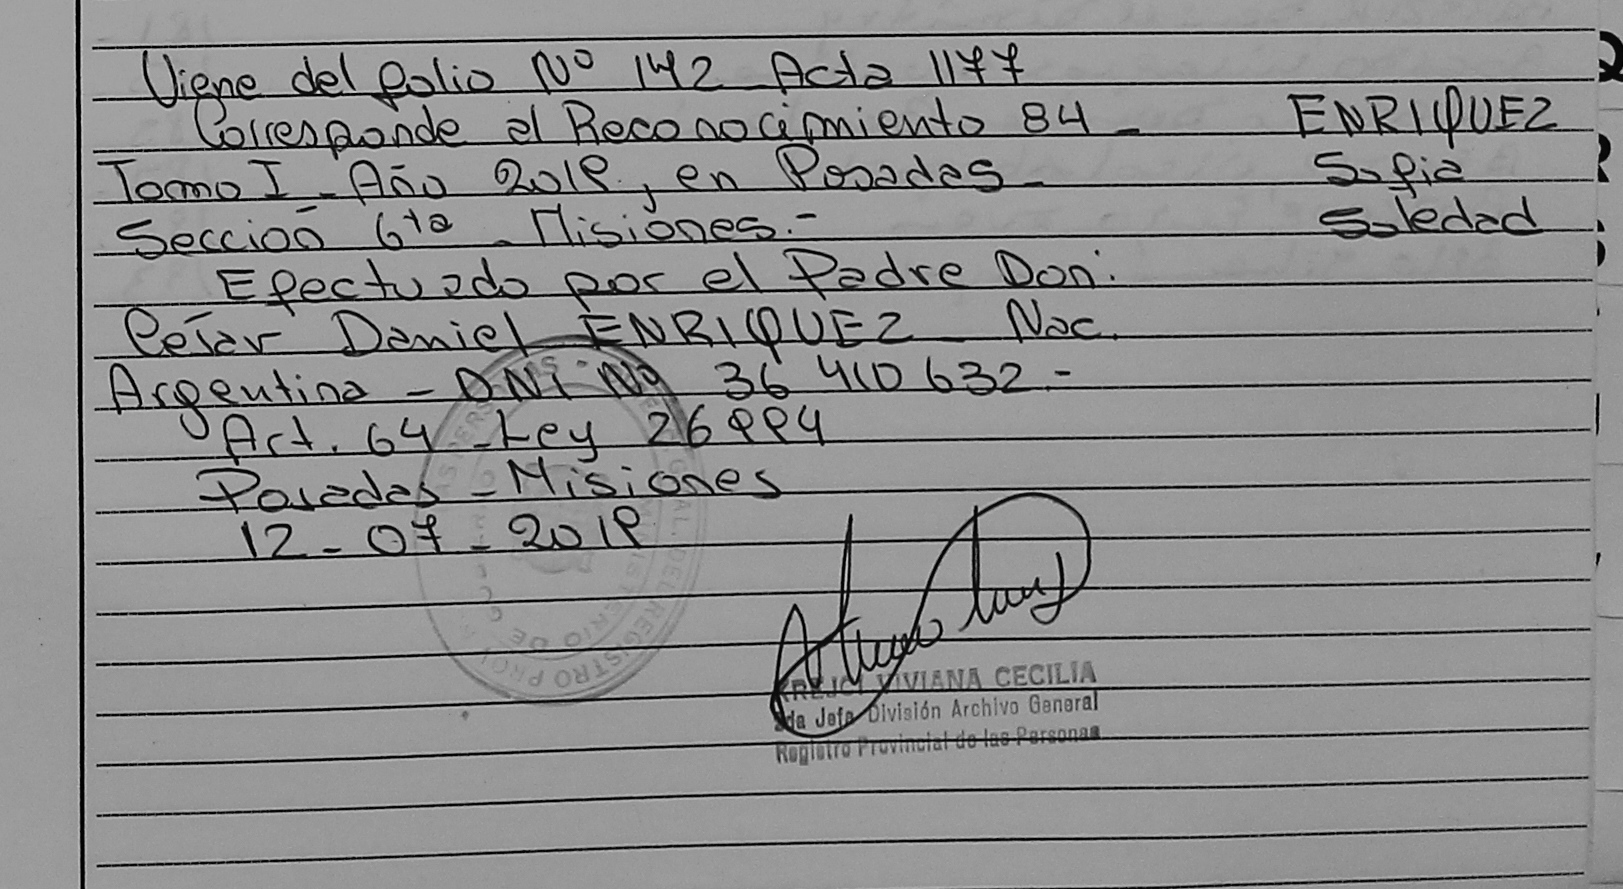 Viene del folio Nº 142 Acta 1177
Corresponde al Reconocimiento 84 -
Tomo I - Año 2019, en Posadas -
Sección 6ta - Misiones.-
Efectuado por el Padre Don:
César Daniel ENRIQUEZ - Nac.
Argentina - DNI Nº 36 410 632.-
Art. 64 - Ley 26994
Posadas - Misiones
12 - 07 - 2019
ENRIQUEZ
Sofia
Soledad
VIVIANA CECILIA
2da Jefa División Archivo General
Registro Provincial de las Personas